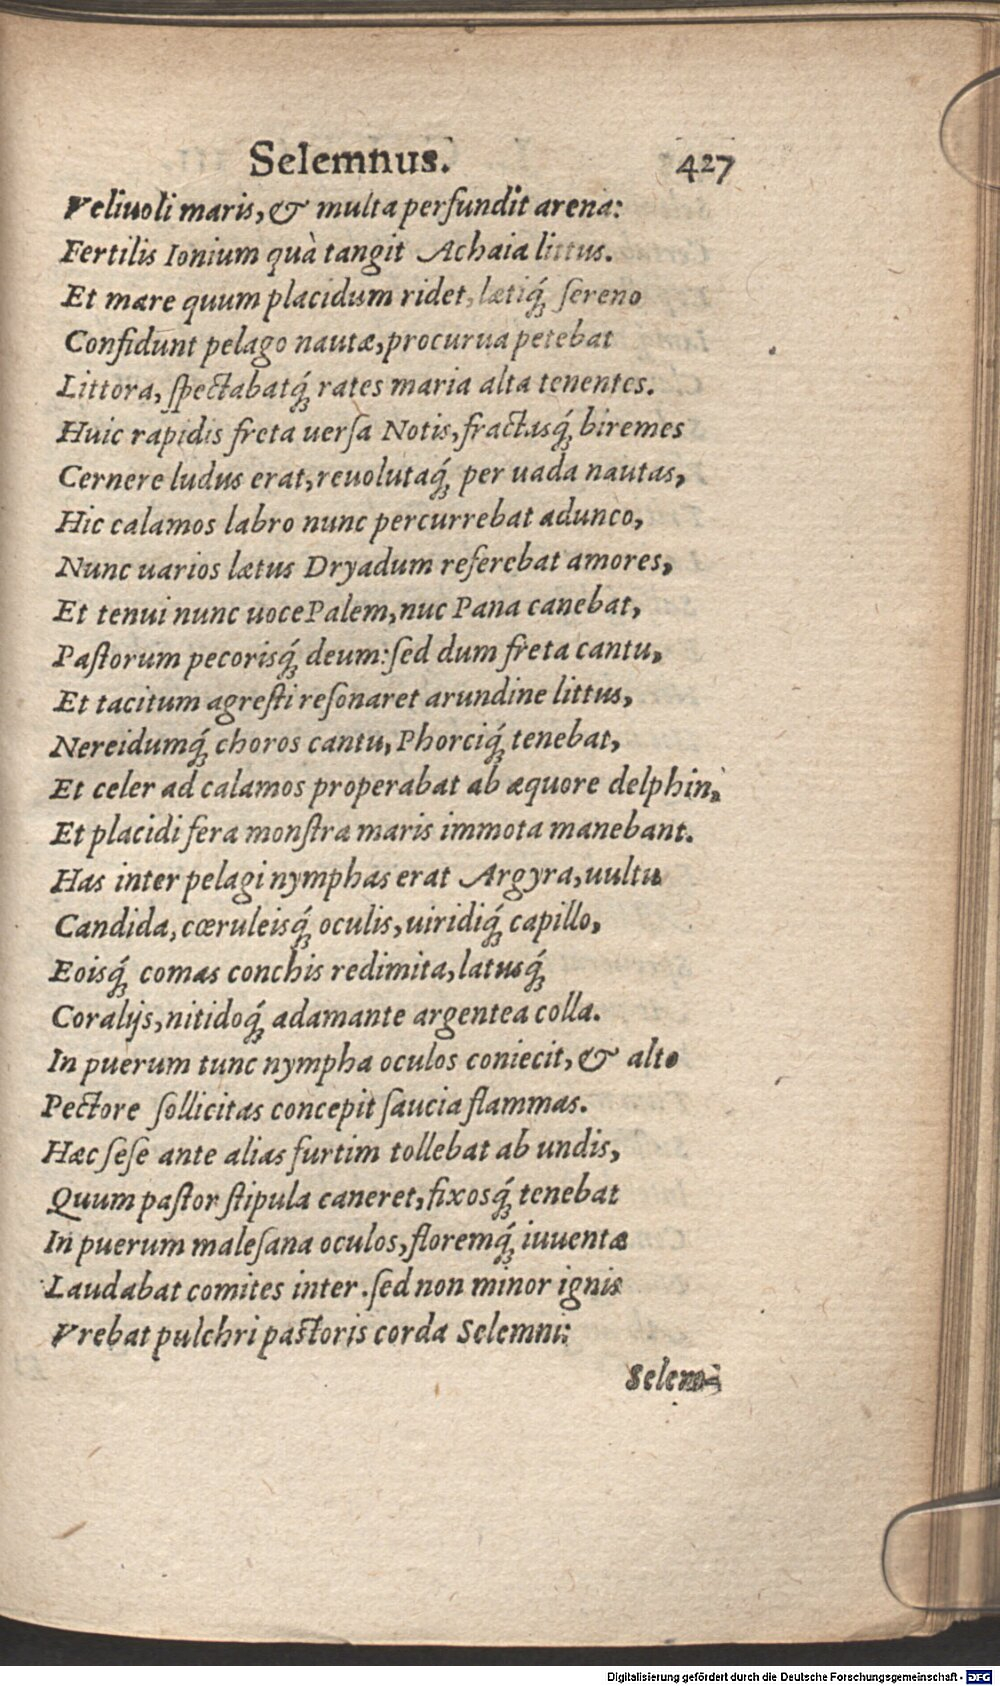 Selemnus. 427
Veliuoli maris, & multa perfundit arena:
Fertilis Ionium quà tangit Achaia littus.
Et mare quum placidum ridet, lætiq́; sereno
Confidunt pelago nautæ, procurua petebat
Littora, spectabatq́; rates maria alta tenentes.
Huic rapidis freta uersa Notis, fractasq́; biremes
Cernere ludus erat, reuolutaq́; per uada nautas,
Hic calamos labro nunc percurrebat adunco,
Nunc uarios lætus Dryadum referebat amores,
Et tenui nunc uoce Palem, nuc Pana canebat,
Pastorum pecorisq́; deum: sed dum freta cantu,
Et tacitum agresti resonaret arundine littus,
Nereidumq́; choros cantu, Phorciq́; tenebat,
Et celer ad calamos properabat ab æquore delphin,
Et placidi fera monstra maris immota manebant.
Has inter pelagi nymphas erat Argyra, uultu
Candida, cœruleisq́; oculis, uiridiq́; capillo,
Eoisq́; comas conchis redimita, latusq́;
Coralijs, nitidoq́; adamante argentea colla.
In puerum tunc nympha oculos coniecit, & alto
Pectore sollicitas concepit saucia flammas.
Hæc sese ante alias furtim tollebat ab undis,
Quum pastor stipula caneret, fixosq́; tenebat
In puerum malesana oculos, floremq́; iuuentæ
Laudabat comites inter. sed non minor ignis
Vrebat pulchri pastoris corda Selemni:
Selem-
Digitalisierung gefördert durch die Deutsche Forschungsgemeinschaft - DFG